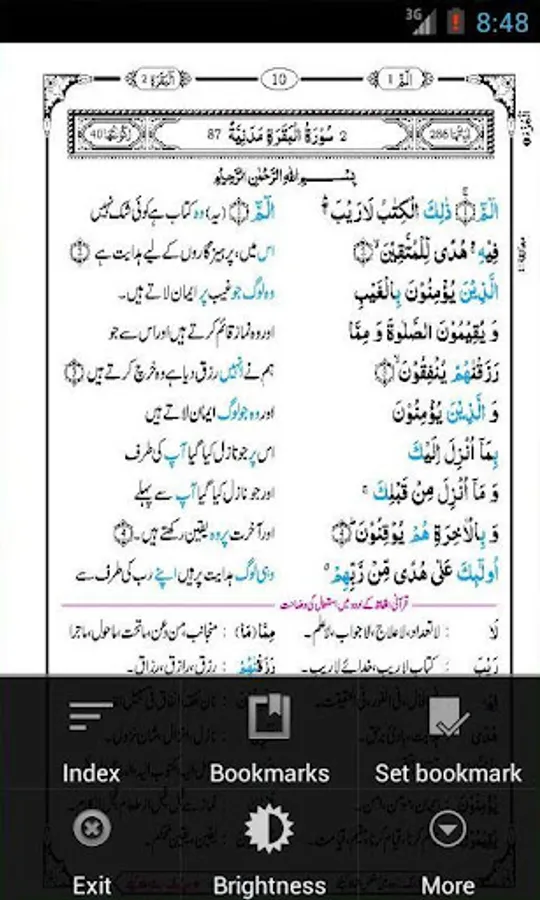 3G 8:48
الٓمّٓ ١ 10 اَلْبَقَرَة ٢
اٰیَاتُهَا 286 2 سُوْرَةُ الْبَقَرَةِ مَدَنِیَّةٌ 87 رُکُوْعَاتُهَا 40
بِسْمِ اللّٰهِ الرَّحْمٰنِ الرَّحِیْمِ
الٓمّٓ ۚ﴿۱﴾ ذٰلِكَ الْكِتٰبُ لَا رَیْبَ ۛۖ الٓمّٓ ﴿۱﴾ (یہ) وہ کتاب ہے کوئی شک نہیں
فِیْهِ ۛۚ هُدًی لِّلْمُتَّقِیْنَ ۙ﴿۲﴾ اس میں، پرہیزگاروں کے لیے ہدایت ہے ﴿۲﴾
الَّذِیْنَ یُؤْمِنُوْنَ بِالْغَیْبِ وہ لوگ جو غیب پر ایمان لاتے ہیں۔
وَ یُقِیْمُوْنَ الصَّلٰوةَ وَ مِمَّا اور وہ نماز قائم کرتے ہیں اور اس سے جو
رَزَقْنٰهُمْ یُنْفِقُوْنَ ۙ﴿۳﴾ ہم نے انہیں رزق دیا ہے وہ خرچ کرتے ہیں ﴿۳﴾
وَ الَّذِیْنَ یُؤْمِنُوْنَ اور وہ جو لوگ ایمان لاتے ہیں
بِمَاۤ اُنْزِلَ اِلَیْكَ اس پر جو نازل کیا گیا آپ کی طرف
وَ مَاۤ اُنْزِلَ مِنْ قَبْلِكَ ۚ اور جو نازل کیا گیا آپ سے پہلے
وَ بِالْاٰخِرَةِ هُمْ یُوْقِنُوْنَ ؕ﴿۴﴾ اور آخرت پر وہ یقین رکھتے ہیں۔ ﴿۴﴾
اُولٰٓىِٕكَ عَلٰی هُدًی مِّنْ رَّبِّهِمْ ۗ وہی لوگ ہدایت پر ہیں اپنے رب کی طرف سے
قرآنی الفاظ کے اردو میں استعمال کی وضاحت
لَا : لا تعداد، لا علاج، لا جواب، لا علم۔ مِمَّا (مَا) : منجانب، من و عن، ماتحت، ماحول، ماجرا
رَیْبَ : کتاب لا ریب، خدائے لا ریب۔ رَزَقْنٰهُمْ : رزق، رازق، رزاق۔
Index Bookmarks Set bookmark
Exit Brightness More